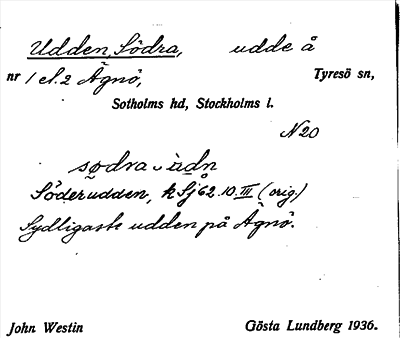 Udden, Södra, udde å
nr 1 el. 2 Ägnö, Tyresö sn,
Sotholms hd, Stockholms l.
N20
Söderudden, k Sj 62.10.III (orig.)
Sydligaste udden på Ägnö.
John Westin Gösta Lundberg 1936.